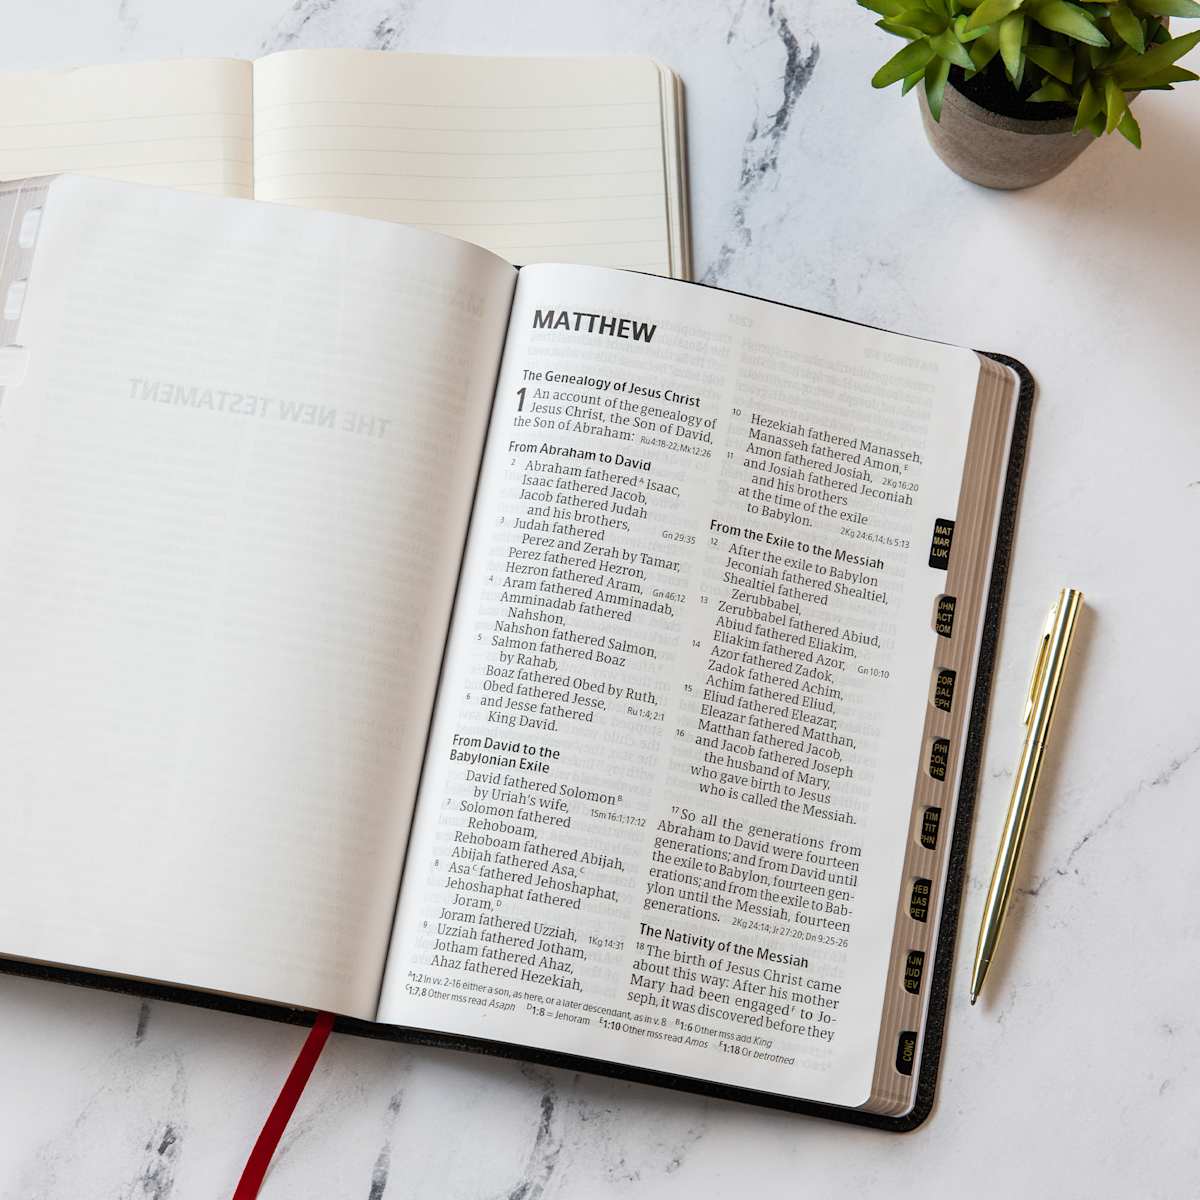 THE NEW TESTAMENT
MATTHEW
The Genealogy of Jesus Christ
1 An account of the genealogy of
Jesus Christ, the Son of David,
the Son of Abraham: Ru4:18-22; Mk12:26
From Abraham to David
2 Abraham fathered A Isaac,
Isaac fathered Jacob,
Jacob fathered Judah
and his brothers,
3 Judah fathered Gn 29:35
Perez and Zerah by Tamar,
Perez fathered Hezron,
Hezron fathered Aram, Gn 46:12
4 Aram fathered Amminadab,
Amminadab fathered
Nahshon,
Nahshon fathered Salmon,
5 Salmon fathered Boaz
by Rahab,
Boaz fathered Obed by Ruth,
Obed fathered Jesse, Ru1:4; 2:1
6 and Jesse fathered
King David.
From David to the
Babylonian Exile
David fathered Solomon B
by Uriah's wife, 1Sm 16:1; 17:12
7 Solomon fathered
Rehoboam,
Rehoboam fathered Abijah,
Abijah fathered Asa, C
8 Asa C fathered Jehoshaphat,
Jehoshaphat fathered
Joram, D
Joram fathered Uzziah, 1Kg 14:31
9 Uzziah fathered Jotham,
Jotham fathered Ahaz,
Ahaz fathered Hezekiah,
10 Hezekiah fathered Manasseh,
Manasseh fathered Amon, E
Amon fathered Josiah, 2Kg 16:20
11 and Josiah fathered Jeconiah
and his brothers
at the time of the exile
to Babylon. 2Kg 24:6,14; Is 5:13
From the Exile to the Messiah
12 After the exile to Babylon
Jeconiah fathered Shealtiel,
Shealtiel fathered
Zerubbabel,
13 Zerubbabel fathered Abiud,
Abiud fathered Eliakim,
Eliakim fathered Azor, Gn 10:10
14 Azor fathered Zadok,
Zadok fathered Achim,
Achim fathered Eliud,
15 Eliud fathered Eleazar,
Eleazar fathered Matthan,
Matthan fathered Jacob,
16 and Jacob fathered Joseph
the husband of Mary,
who gave birth to Jesus
who is called the Messiah.
17 So all the generations from
Abraham to David were fourteen
generations; and from David until
the exile to Babylon, fourteen gen-
erations; and from the exile to Bab-
ylon until the Messiah, fourteen
generations. 2Kg 24:14; Jr 27:20; Dn 9:25-26
The Nativity of the Messiah
18 The birth of Jesus Christ came
about this way: After his mother
Mary had been engaged F to Jo-
seph, it was discovered before they
A1:2 In vv. 2-16 either a son, as here, or a later descendant, as in v. 8 B1:6 Other mss add King
C1:7,8 Other mss read Asaph D1:8 = Jehoram E1:10 Other mss read Amos F1:18 Or betrothed
MAT
MAR
LUK
JHN
ACT
ROM
COR
GAL
EPH
PHI
COL
THS
TIM
TIT
PHN
HEB
JAS
PET
JJN
JUD
REV
CONC